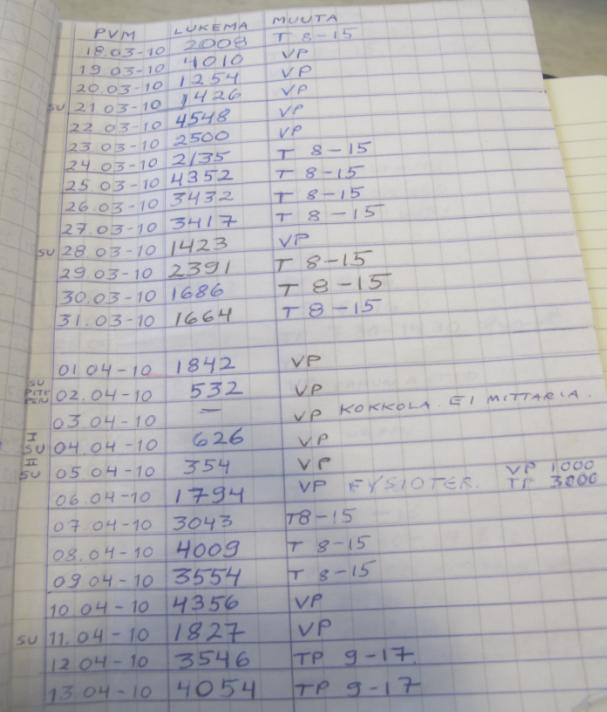 PVM LUKEMA MUUTA
18.03-10 2008 T 8-15
19.03-10 4010 VP
20.03-10 1254 VP
SU 21.03-10 1426 VP
22.03-10 4548 VP
23.03-10 2500 VP
24.03-10 2135 T 8-15
25.03-10 4352 T 8-15
26.03-10 3432 T 8-15
27.03-10 3417 T 8-15
SU 28.03-10 1423 VP
29.03-10 2391 T 8-15
30.03-10 1686 T 8-15
31.03-10 1664 T 8-15
01.04-10 1842 VP
SU
02.04-10 532 VP
03.04-10 — VP KOKKOLA. EI MITTARIA.
I SU 04.04-10 626 VP
II SU 05.04-10 354 VP
06.04-10 1794 VP FYSIOTER. VP 1000
TP 3000
07.04-10 3043 T8-15
08.04-10 4009 T 8-15
09.04-10 3554 T 8-15
10.04-10 4356 VP
SU 11.04-10 1827 VP
12.04-10 3546 TP 9-17
13.04-10 4054 TP 9-17